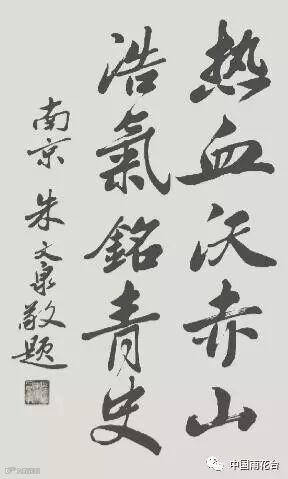 热血沃赤山
浩氣銘青史
南京 朱文泉敬题
中国雨花台